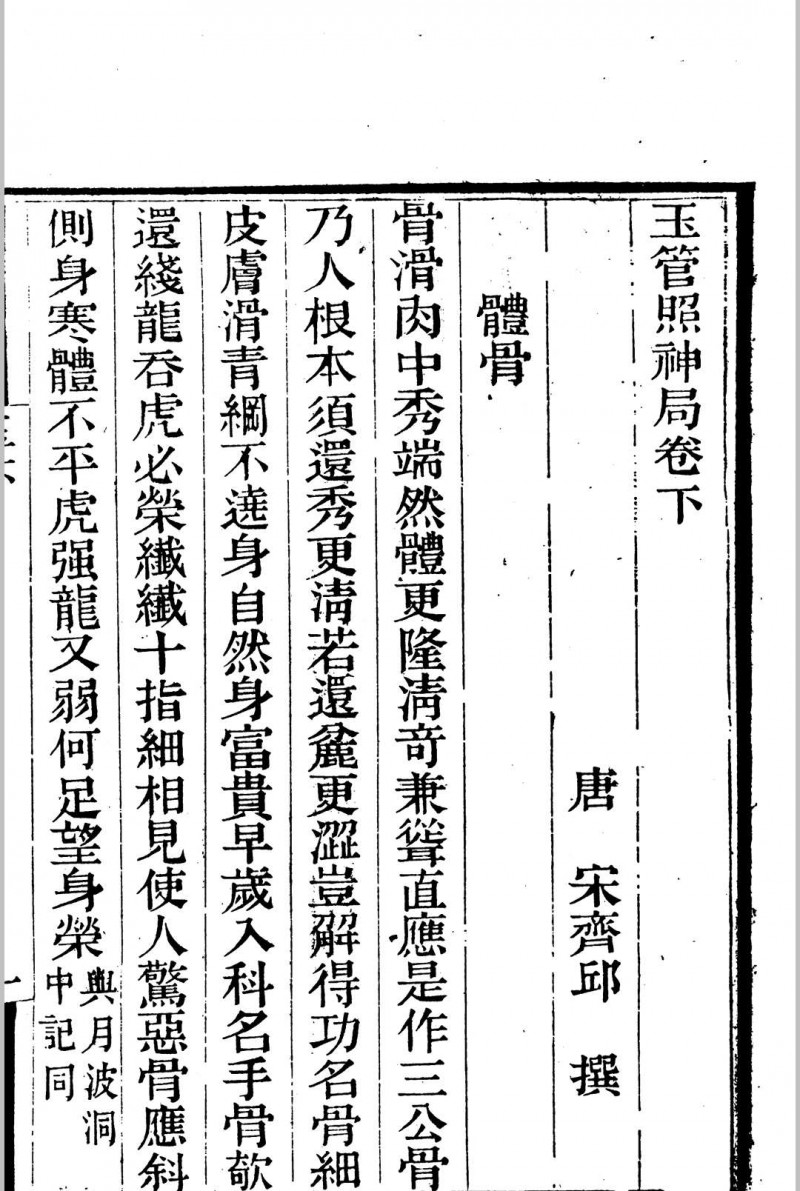 玉管照神局卷下
唐　宋齊邱　撰
體骨
骨滑肉中秀端然體更隆清奇兼聳直應是作三公骨
乃人根本須還秀更清若還麄更澀豈解得功名骨細
皮膚滑青綱不遶身自然身富貴早歲入科名手骨欹
還綫龍吞虎必榮纎纎十指細相見使人驚惡骨應斜
側身寒體不平虎强龍又弱何足望身榮與月波洞中記同